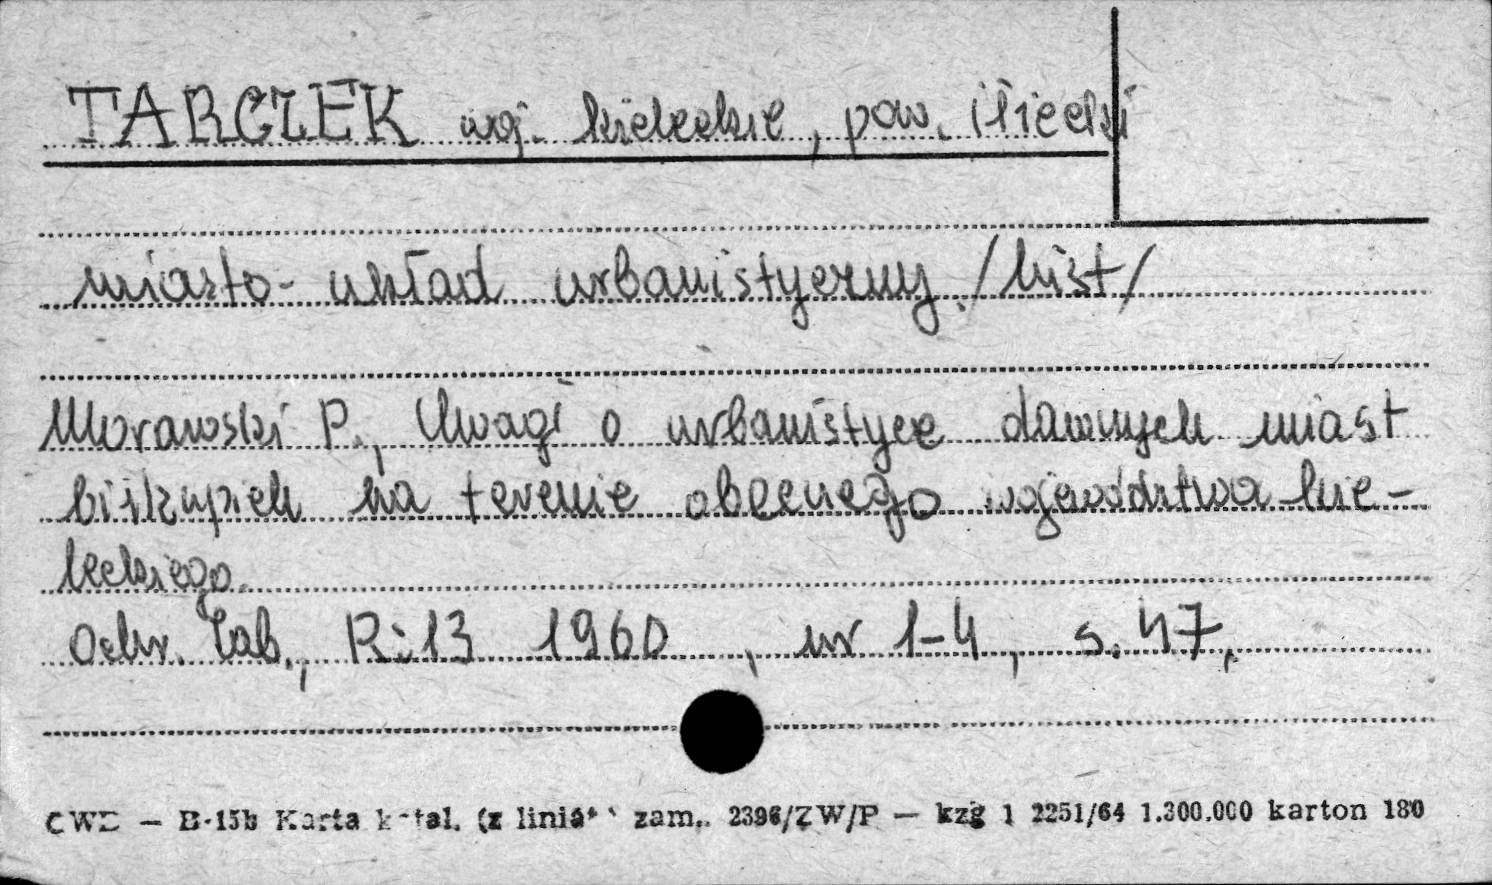 TARCZEK woj. kieleckie, pow. iłżecki
miasto - układ urbanistyczny /hist/
Morawski P., Uwagi o urbanistyce dawnych miast
biskupich na terenie obecnego województwa kie-
leckiego.
Ochr. Zab., R:13 1960, nr 1-4, s. 47,
CWD — B-15b Karta katal. (z linią) zam. 2396/ZW/P — kzg 1 2251/64 1.300.000 karton 180